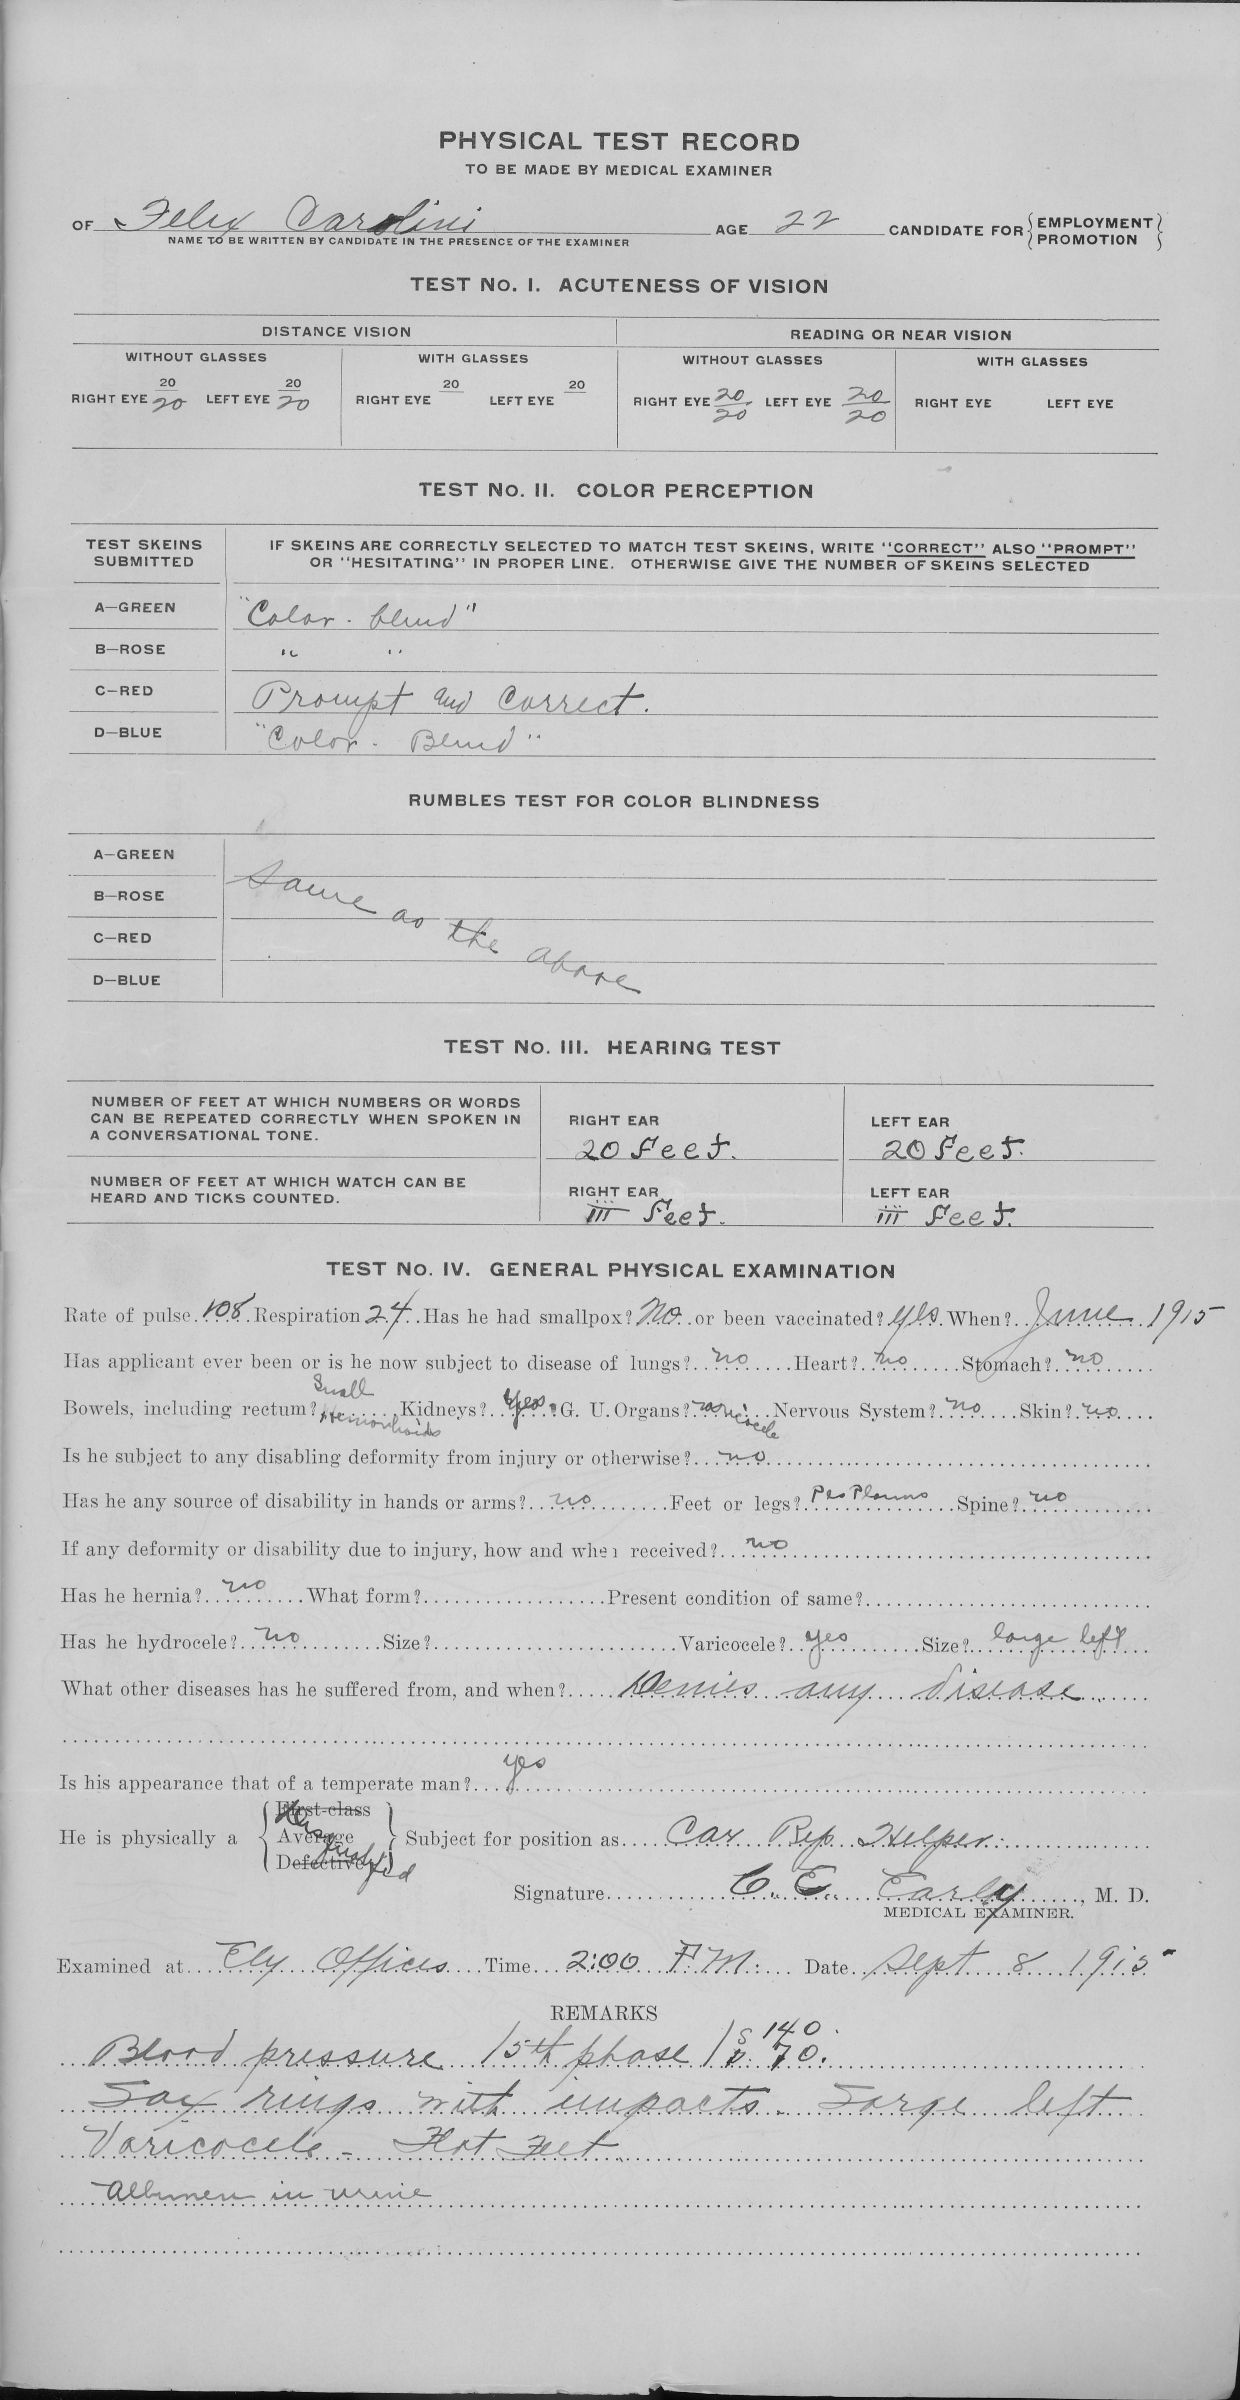 PHYSICAL TEST RECORD
TO BE MADE BY MEDICAL EXAMINER
OF Felix Carolini AGE 22 CANDIDATE FOR { EMPLOYMENT PROMOTION }
NAME TO BE WRITTEN BY CANDIDATE IN THE PRESENCE OF THE EXAMINER
TEST No. I. ACUTENESS OF VISION
DISTANCE VISION READING OR NEAR VISION
WITHOUT GLASSES WITH GLASSES WITHOUT GLASSES WITH GLASSES
RIGHT EYE 20/20 LEFT EYE 20/20 RIGHT EYE 20 LEFT EYE 20 RIGHT EYE 20/20 LEFT EYE 20/20 RIGHT EYE LEFT EYE
TEST No. II. COLOR PERCEPTION
TEST SKEINS SUBMITTED
IF SKEINS ARE CORRECTLY SELECTED TO MATCH TEST SKEINS, WRITE "CORRECT" ALSO "PROMPT"
OR "HESITATING" IN PROPER LINE. OTHERWISE GIVE THE NUMBER OF SKEINS SELECTED
A—GREEN "Color - blind"
B—ROSE " "
C—RED Prompt and Correct.
D—BLUE "Color - Blind"
RUMBLES TEST FOR COLOR BLINDNESS
A—GREEN
B—ROSE
C—RED
D—BLUE
Same as the above
TEST No. III. HEARING TEST
NUMBER OF FEET AT WHICH NUMBERS OR WORDS
CAN BE REPEATED CORRECTLY WHEN SPOKEN IN
A CONVERSATIONAL TONE.
RIGHT EAR 20 Feet. LEFT EAR 20 Feet.
NUMBER OF FEET AT WHICH WATCH CAN BE
HEARD AND TICKS COUNTED.
RIGHT EAR iii Feet. LEFT EAR iii Feet.
TEST No. IV. GENERAL PHYSICAL EXAMINATION
Rate of pulse 108 Respiration 24 Has he had smallpox? No or been vaccinated? yes When? June 1915
Has applicant ever been or is he now subject to disease of lungs? no Heart? no Stomach? no
Bowels, including rectum? Small Hemorrhoids Kidneys? yes G. U. Organs? varicocele Nervous System? no Skin? no
Is he subject to any disabling deformity from injury or otherwise? no
Has he any source of disability in hands or arms? no Feet or legs? Pes Planus Spine? no
If any deformity or disability due to injury, how and when received? no
Has he hernia? no What form? Present condition of same?
Has he hydrocele? no Size? Varicocele? yes Size? large left
What other diseases has he suffered from, and when? Denies any disease
Is his appearance that of a temperate man? yes
He is physically a { First-class Average Defective } Disqualified Subject for position as Car Rep Helper
Signature C. E. Early, M. D.
MEDICAL EXAMINER.
Examined at Ely Offices Time 2:00 P.M. Date Sept 8 1915
REMARKS
Blood pressure 15th phase S 140. D. 70.
Lax rings with impacts. Large left
Varicocele - Flat Feet
Albumen in urine